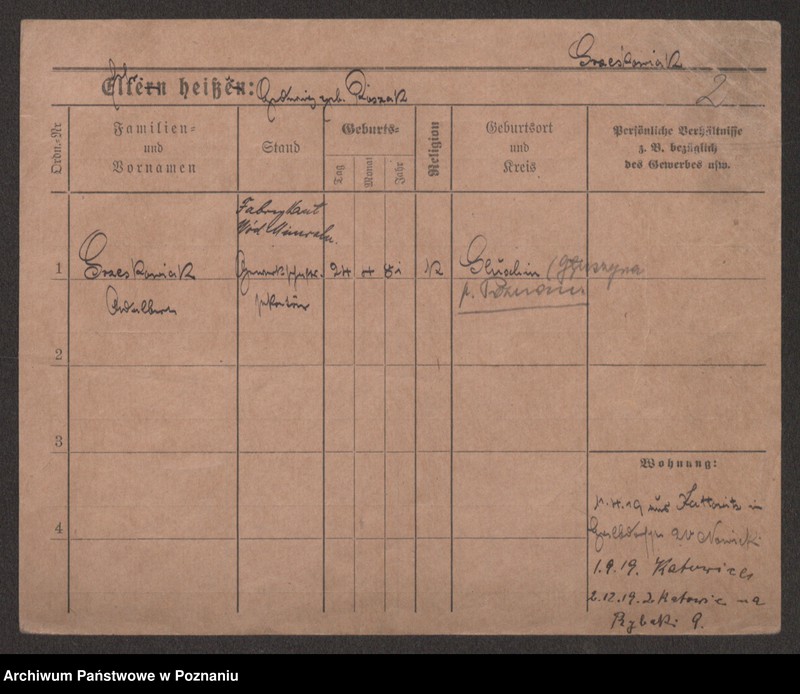 Graeskowiak
Eltern heißen: Hedwig geb. Piszak
2
Ordn.-Nr
Familien-
und
Vornamen
Stand
Geburts-
Tag
Monat
Jahr
Religion
Geburtsort
und
Kreis
Persönliche Verhältnisse
z. B. bezüglich
des Gewerbes usw.
Fabrykant
Wód Mineraln.
1
Graeskowiak
24 4 81
K
Gluschin (Głuszyna
p. Poznaniu
Adalbert
sekretär
2
3
4
Wohnung:
1.4.19 aus Kattowitz in
Nowicki
1.9.19. Katowice
2.12.19. z Katowic na
Rybaki 9.
Archiwum Państwowe w Poznaniu